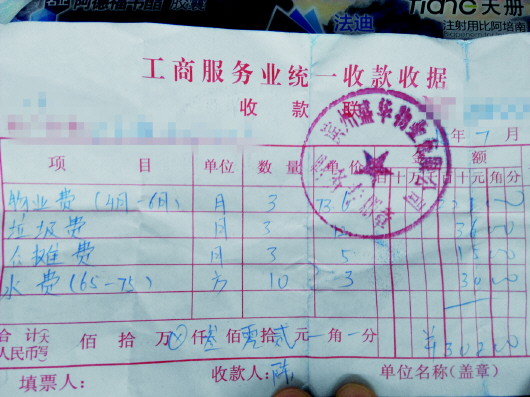 法迪
天册
注射用比阿培南
工商服务业统一收款收据
收款联
年 7 月
项 目 单位 数量 单价 金额
百十万千百十元角分
物业费(4月-6月) 月 3
垃圾费 月 3
公摊费 月 3 5 15 00
水费(65-75) 方 10 3 30 00
合计(大写)人民币 佰 拾 万 ⊗ 仟 叁 佰 零 拾 贰 元 一 角 一 分 ¥302.00
填票人: 收款人:陈 单位名称(盖章)